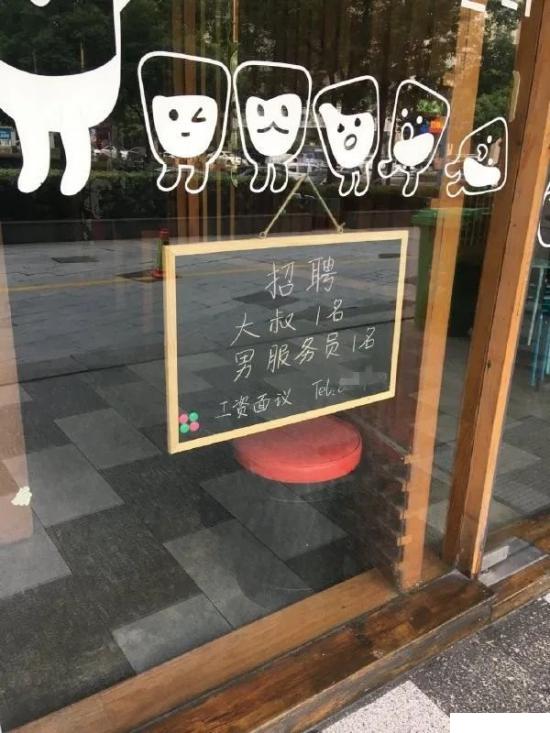 招聘
大叔1名
男服务员1名
工资面议 Tel: